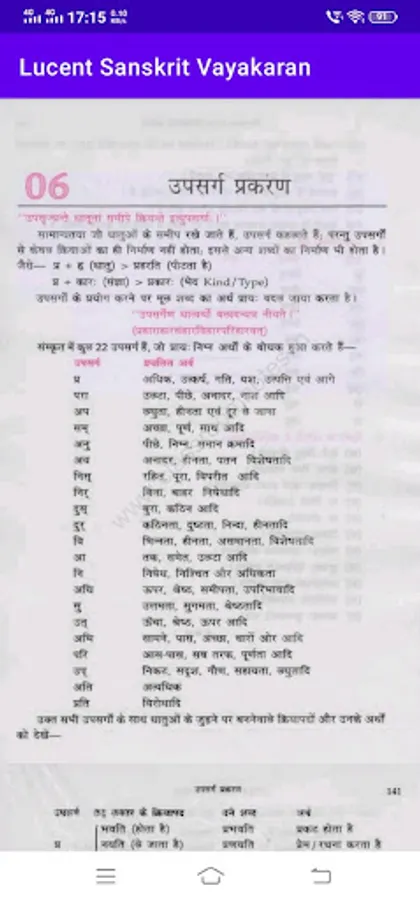 17:15
Lucent Sanskrit Vayakaran
06 उपसर्ग प्रकरण
सामान्यतया जो धातुओं के समीप रखे जाते हैं, उपसर्ग कहलाते हैं; परन्तु उपसर्गों
से केवल क्रियाओं का ही निर्माण नहीं होता; इससे अन्य शब्दों का निर्माण भी होता है।
जैसे— प्र + हृ (धातु) > प्रहरति (पीटता है)
प्र + कारः (संज्ञा) > प्रकारः (भेद Kind/Type)
उपसर्गों के प्रयोग करने पर मूल शब्द का अर्थ प्रायः बदल जाया करता है।
"उपसर्गेण धात्वर्थो बलादन्यत्र नीयते।"
(प्रहाराहारसंहारविहारपरिहारवत्)
संस्कृत में कुल 22 उपसर्ग हैं, जो प्रायः निम्न अर्थों के बोधक हुआ करते हैं—
उपसर्ग प्रचलित अर्थ
प्र अधिक, उत्कर्ष, गति, यश, उत्पत्ति एवं आगे
परा उलटा, पीछे, अनादर, नाश आदि
अप लघुता, हीनता एवं दूर ले जाना
सम् अच्छा, पूर्ण, साथ आदि
अनु पीछे, निम्न, समान क्रमादि
अव अनादर, हीनता, पतन विशेषतादि
निस् रहित, पूरा, विपरीत आदि
निर् बिना, बाहर निषेधादि
दुस् बुरा, कठिन आदि
दुर् कठिनता, दुष्टता, निन्दा, हीनतादि
वि भिन्नता, हीनता, असमानता, विशेषतादि
आ तक, समेत, उलटा आदि
नि निषेध, निश्चित और अधिकता
अधि ऊपर, श्रेष्ठ, समीपता, उपरिभावादि
सु उत्तमता, सुगमता, श्रेष्ठतादि
उत् ऊँचा, श्रेष्ठ, ऊपर आदि
अभि सामने, पास, अच्छा, चारों ओर आदि
परि आस-पास, सब तरफ, पूर्णता आदि
उप् निकट, सदृश, गौण, सहायता, लघुतादि
अति अत्यधिक
प्रति विरोधादि
उक्त सभी उपसर्गों के साथ धातुओं के जुड़ने पर बननेवाले क्रियापदों और उनके अर्थों
को देखें—
उपसर्ग प्रकरण 141
उपसर्ग लट् लकार के क्रियापद बने शब्द अर्थ
भवति (होता है) प्रभवति प्रकट होता है
प्र नयति (ले जाता है) प्रणयति प्रेम/रचना करता है